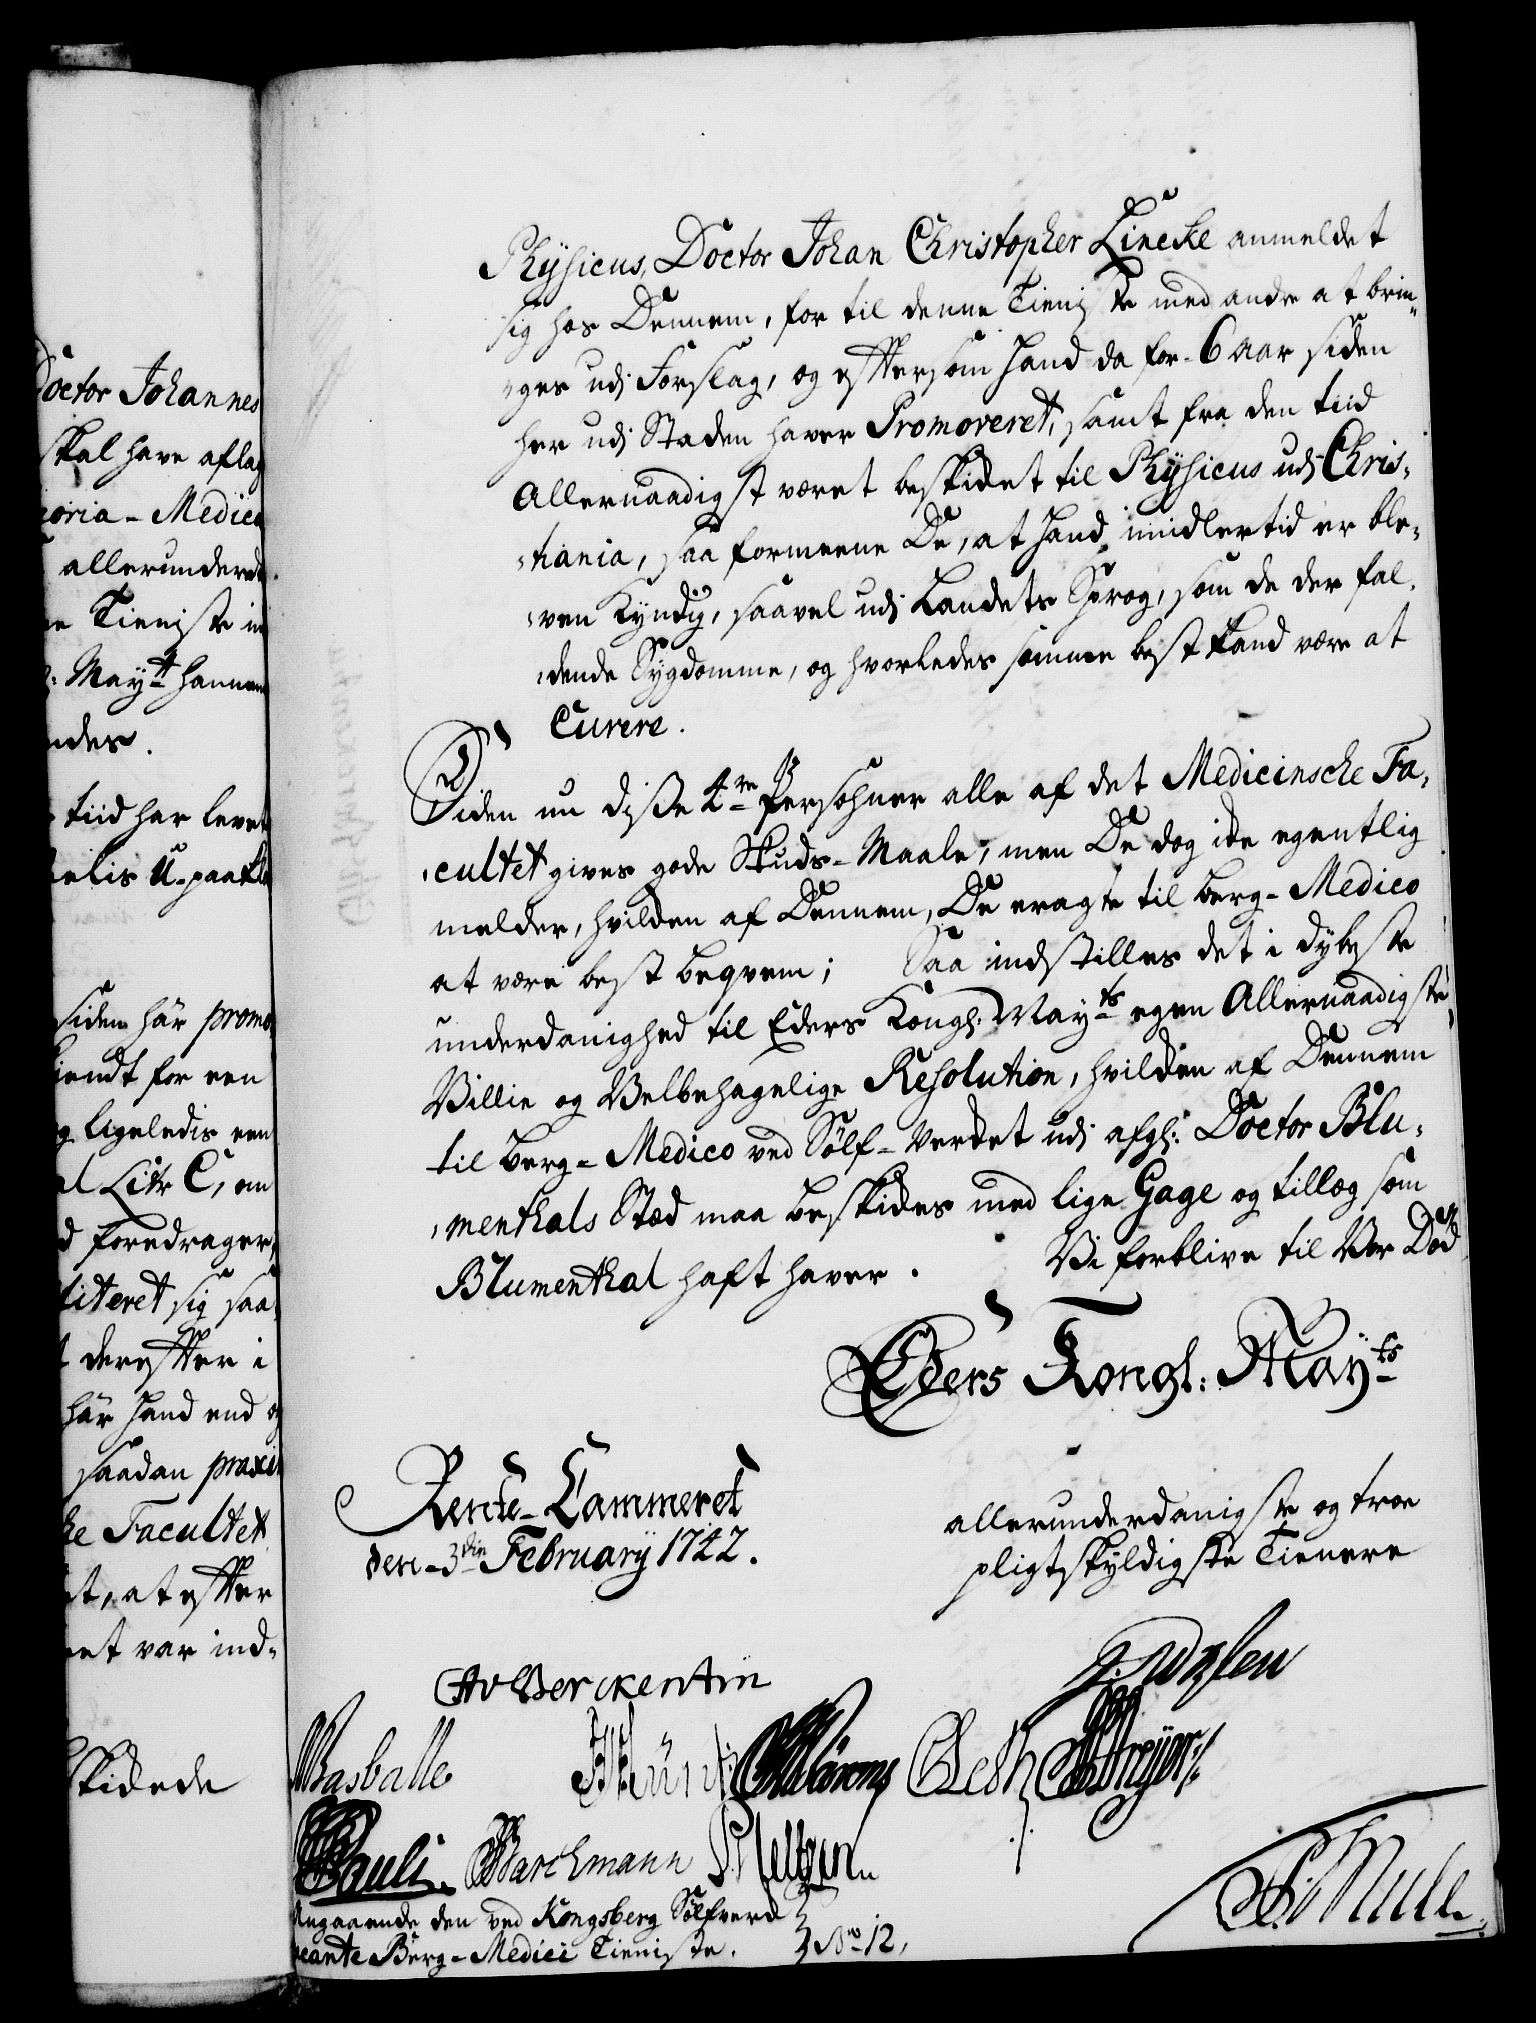 Doctor Johannes
skal have aflag
toria-Medica
allerunderd
ne Tieniste in
May.t hannem
ndes.
tiid har levet
U-paakla
siden hãr promo
kiendt for een
og ligeledis een
Litr C, om
d foredrager,
titeret sig saa
t derefter i
hãr hand end og
saadan praxi
ke Facultet
et, at efter
eet var ind-
skidede
Physicus, Doctor Johan Christopher Lincke anmeldet
sig hos Dennem, for til denne Tieniste med andre at brin-
-ges udj Forslag, og eftersom hand da for-6 aar siden
her udj Staden haver Promoveret, samt fra den tiid
Allernaadigst været beskidet til Physicus udj Chris-
-tiania, saa formeene De, at hand imidlertid er ble-
-ven kyndig, saavel udj Landets Sprog, som de der fal-
-dende Sygdomme, og hvorledes samme best kand være at
Curere.
Siden nu disse 4re Persohner alle af det Medicinsche Fa-
-cultet gives gode Skuds-Maale, men De dog ide egentlig
melder, hvilden af Dennem, De eragte til Berg-Medico
at være best beqvem; Saa indstilles det i dybeste
underdanighed til Eders Kongl: Mayts egen Allernaadigste
Villie og Velbehagelige Resolution, hvilden af Dennem
til Berg-Medico ved Sølf-Verdet udj afgl: Doctor Blu-
-menthals Stæd maa beskides med lige Gage og tillæg som
Blumenthal haft haver. Vi forblive til Vor Død
Eders Kongl: Mayts
Rente-Cammeret
den-3die February 1742.
allerunderdanigste og troe
pligtskyldigste Tienere
CAvBerckentin
Basballe
Oeth
Pauli. Barchmann
P: Mule.
Angaaende den ved Kongsberg Sølfverd
vacante Berg-Medici Tieniste. No 12.